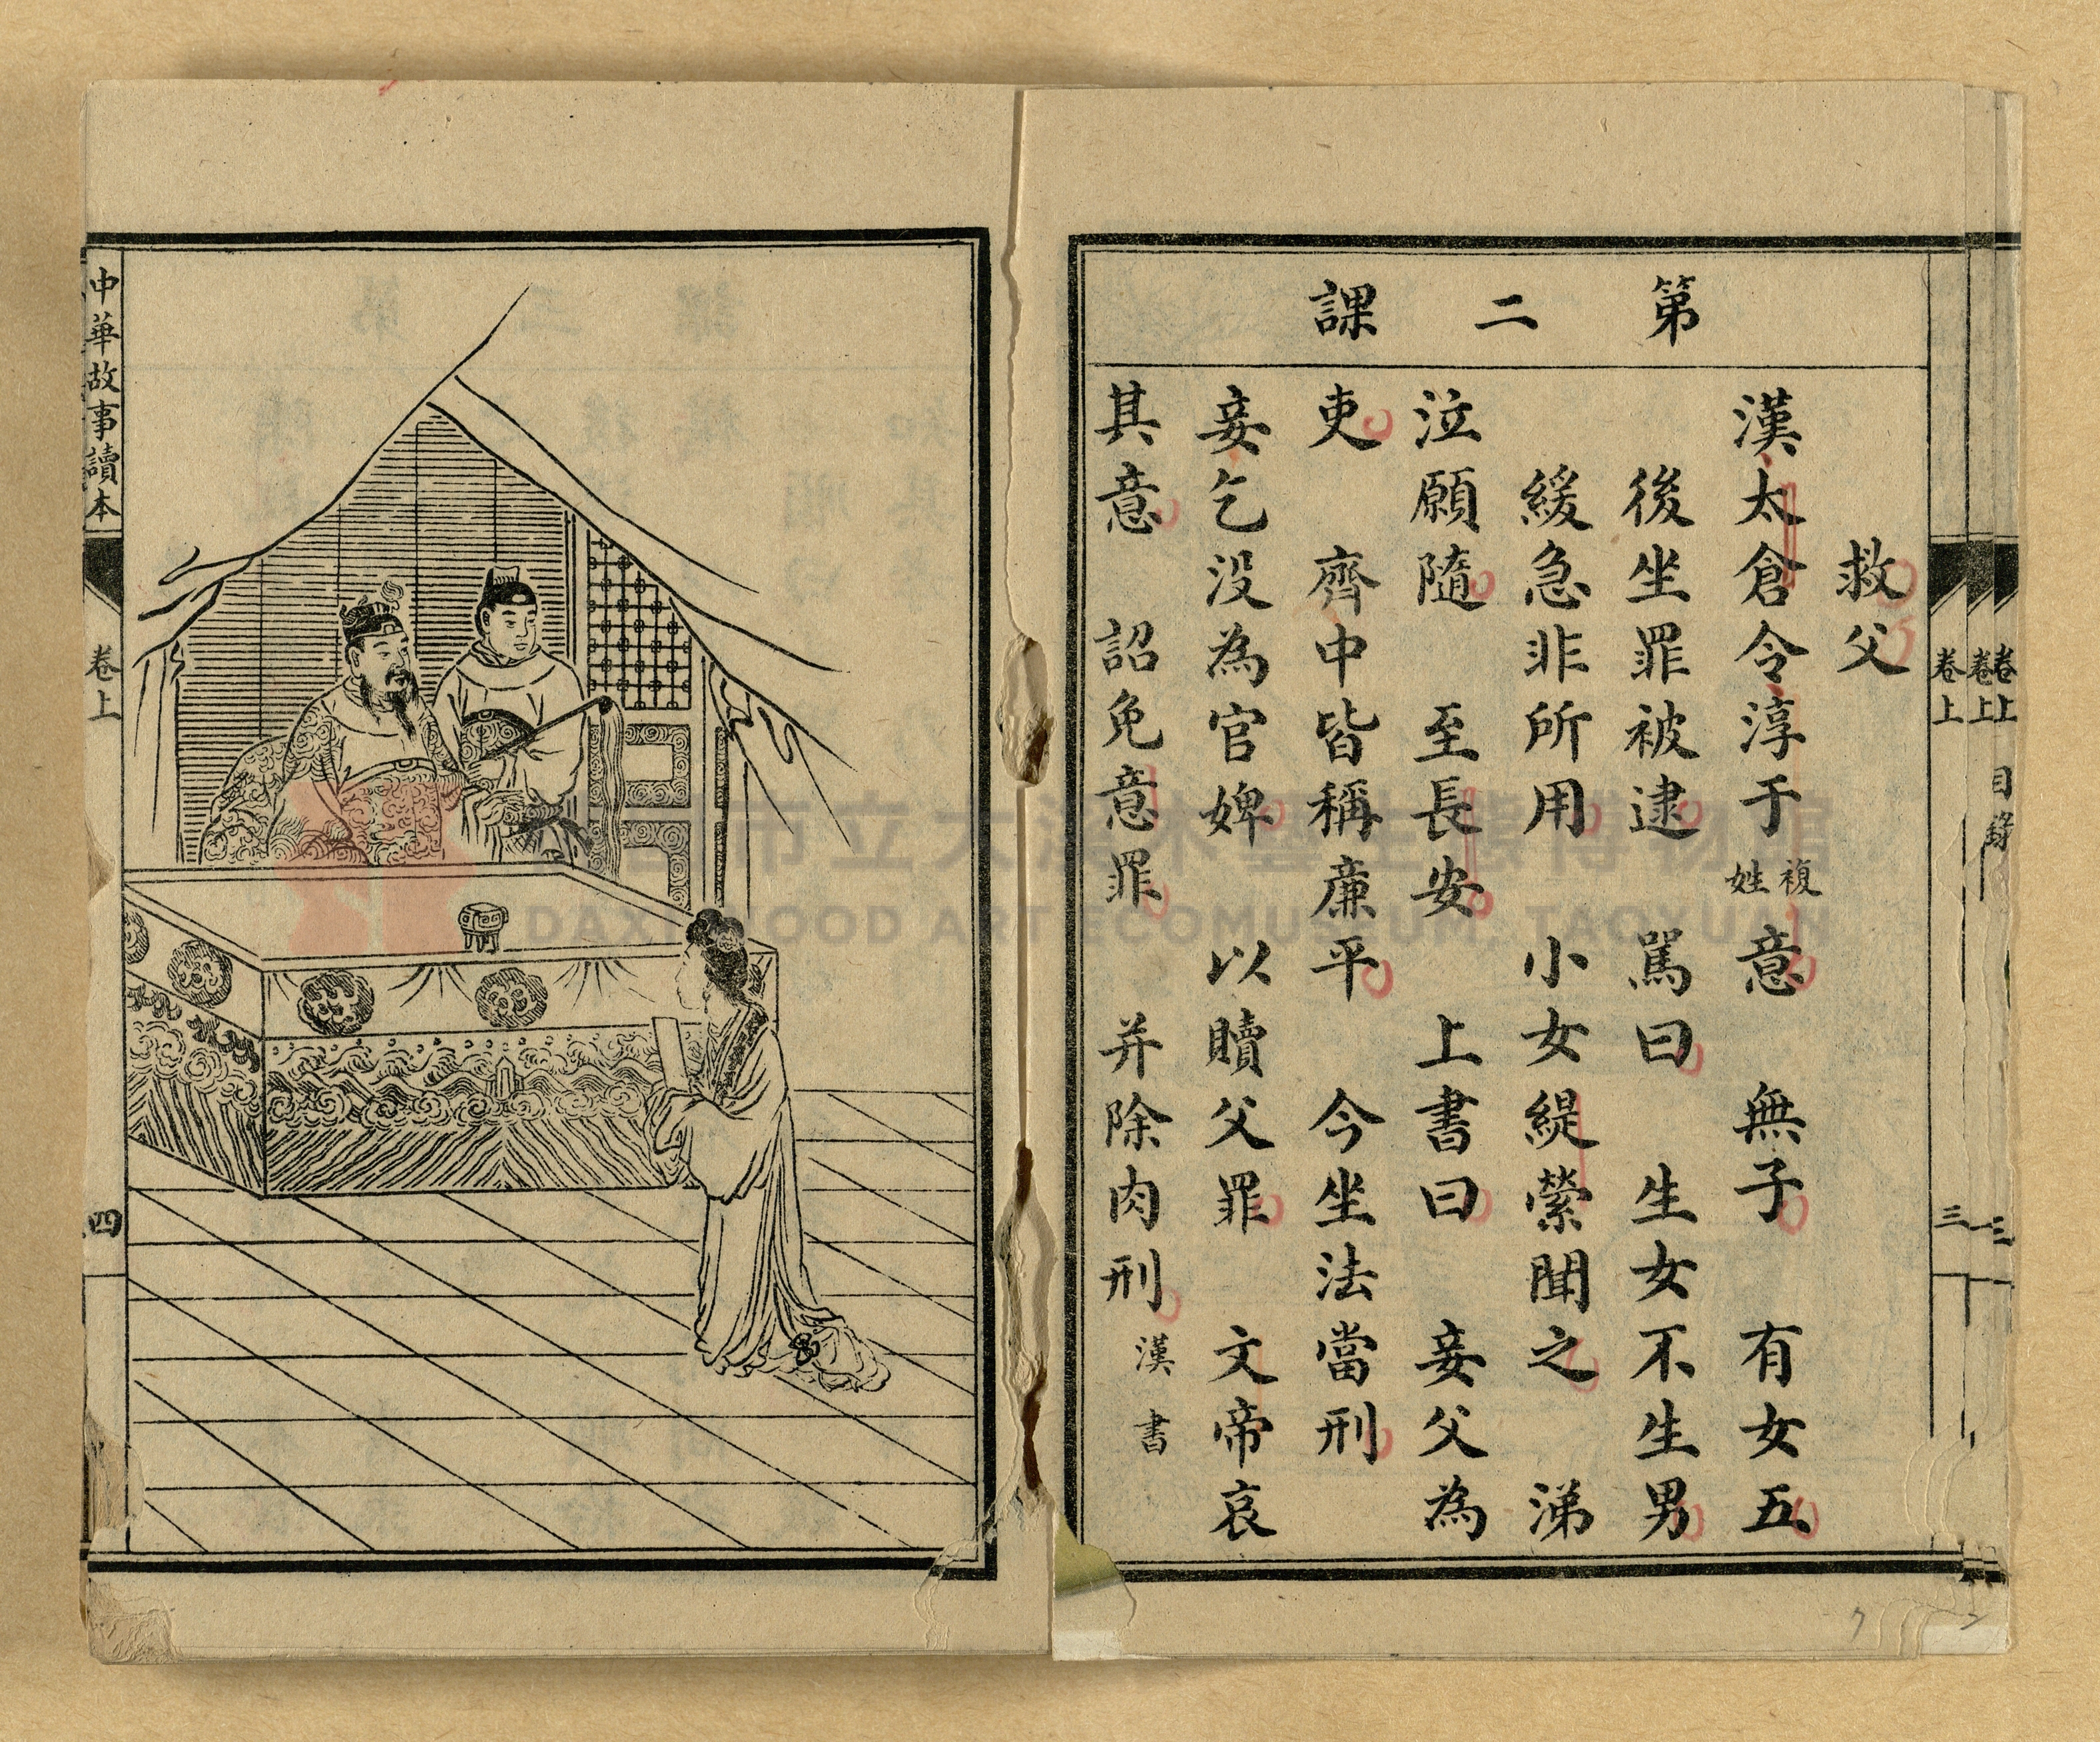 第二課
救父
漢太倉令淳于複姓意 無子 有女五
後坐罪被逮 罵曰 生女不生男
緩急非所用 小女緹縈聞之 涕
泣願隨 至長安 上書曰 妾父為
吏 齊中皆稱廉平 今坐法當刑
妾乞沒為官婢 以贖父罪 文帝哀
其意 詔免意罪 并除肉刑 漢書
卷上 三
卷上
卷上 目錄
中華故事讀本 卷上 四
DAXI WOOD ART ECOMUSEUM, TAOYUAN